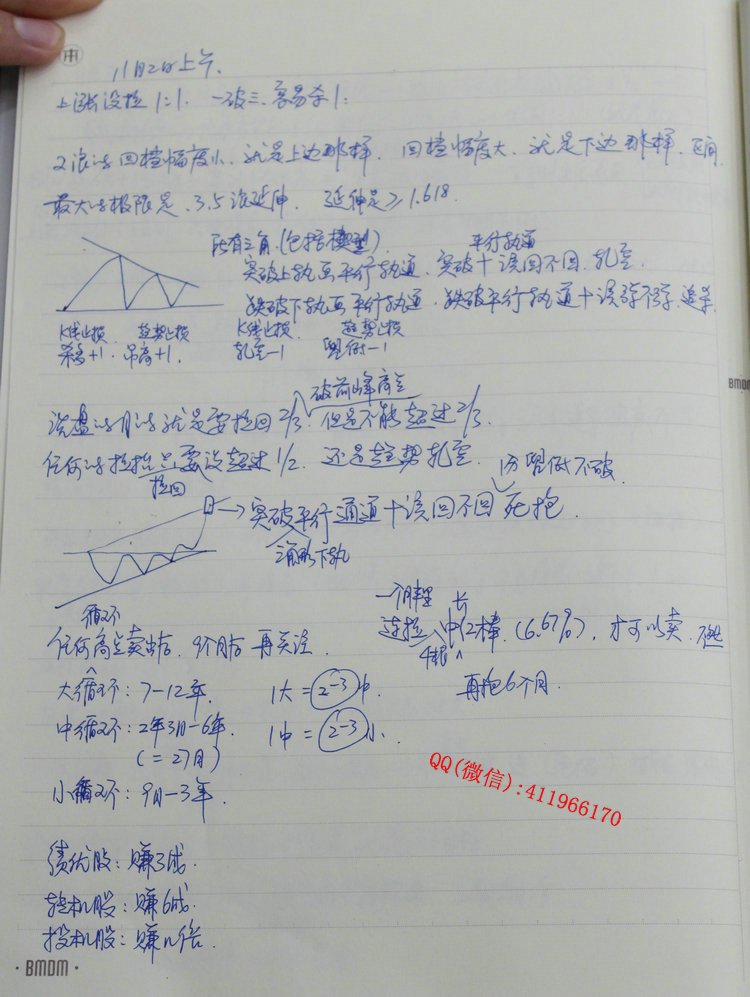 11月2日上午.
上涨没拉1:1. 一破三.容易杀1:
2浪的回档幅度小.就是上边那样. 回档幅度大.就是下边那样.区间
最大的极限是.3.5浪延伸. 延伸是≥1.618.
所有三角.(包括模型). 平行轨道
突破上轨画平行轨道.突破+该回不回.轧空.
跌破下轨画平行轨道.跌破平行轨道+该弹不弹.追杀.
K线止损 趋势止损 K线止损 趋势止损
杀高+1. 吊高+1. 轧空-1 -1
破前峰高点
洗盘的目的就是要拉回2/3.但是不能超过2/3.
任何的拉抬只要没超过1/2.还是趋势轧空.
拉回 低不破
突破平行通道+该回不回死抱.
三角形下轨
循环
任何高点卖出后.9个月后再关注.
一个月里 长
连拉 中 2棒.(6.67%).才可以卖.
4根
再抱6个月.
大循环:7-12年. 1大=2-3中
中循环:2年3月-6年. 1中=2-3小.
(=27月)
小循环:9月-3年.
绩优股:赚3成.
转机股:赚6成.
投机股:赚n倍.
QQ(微信):411966170
BMDM
BMDM